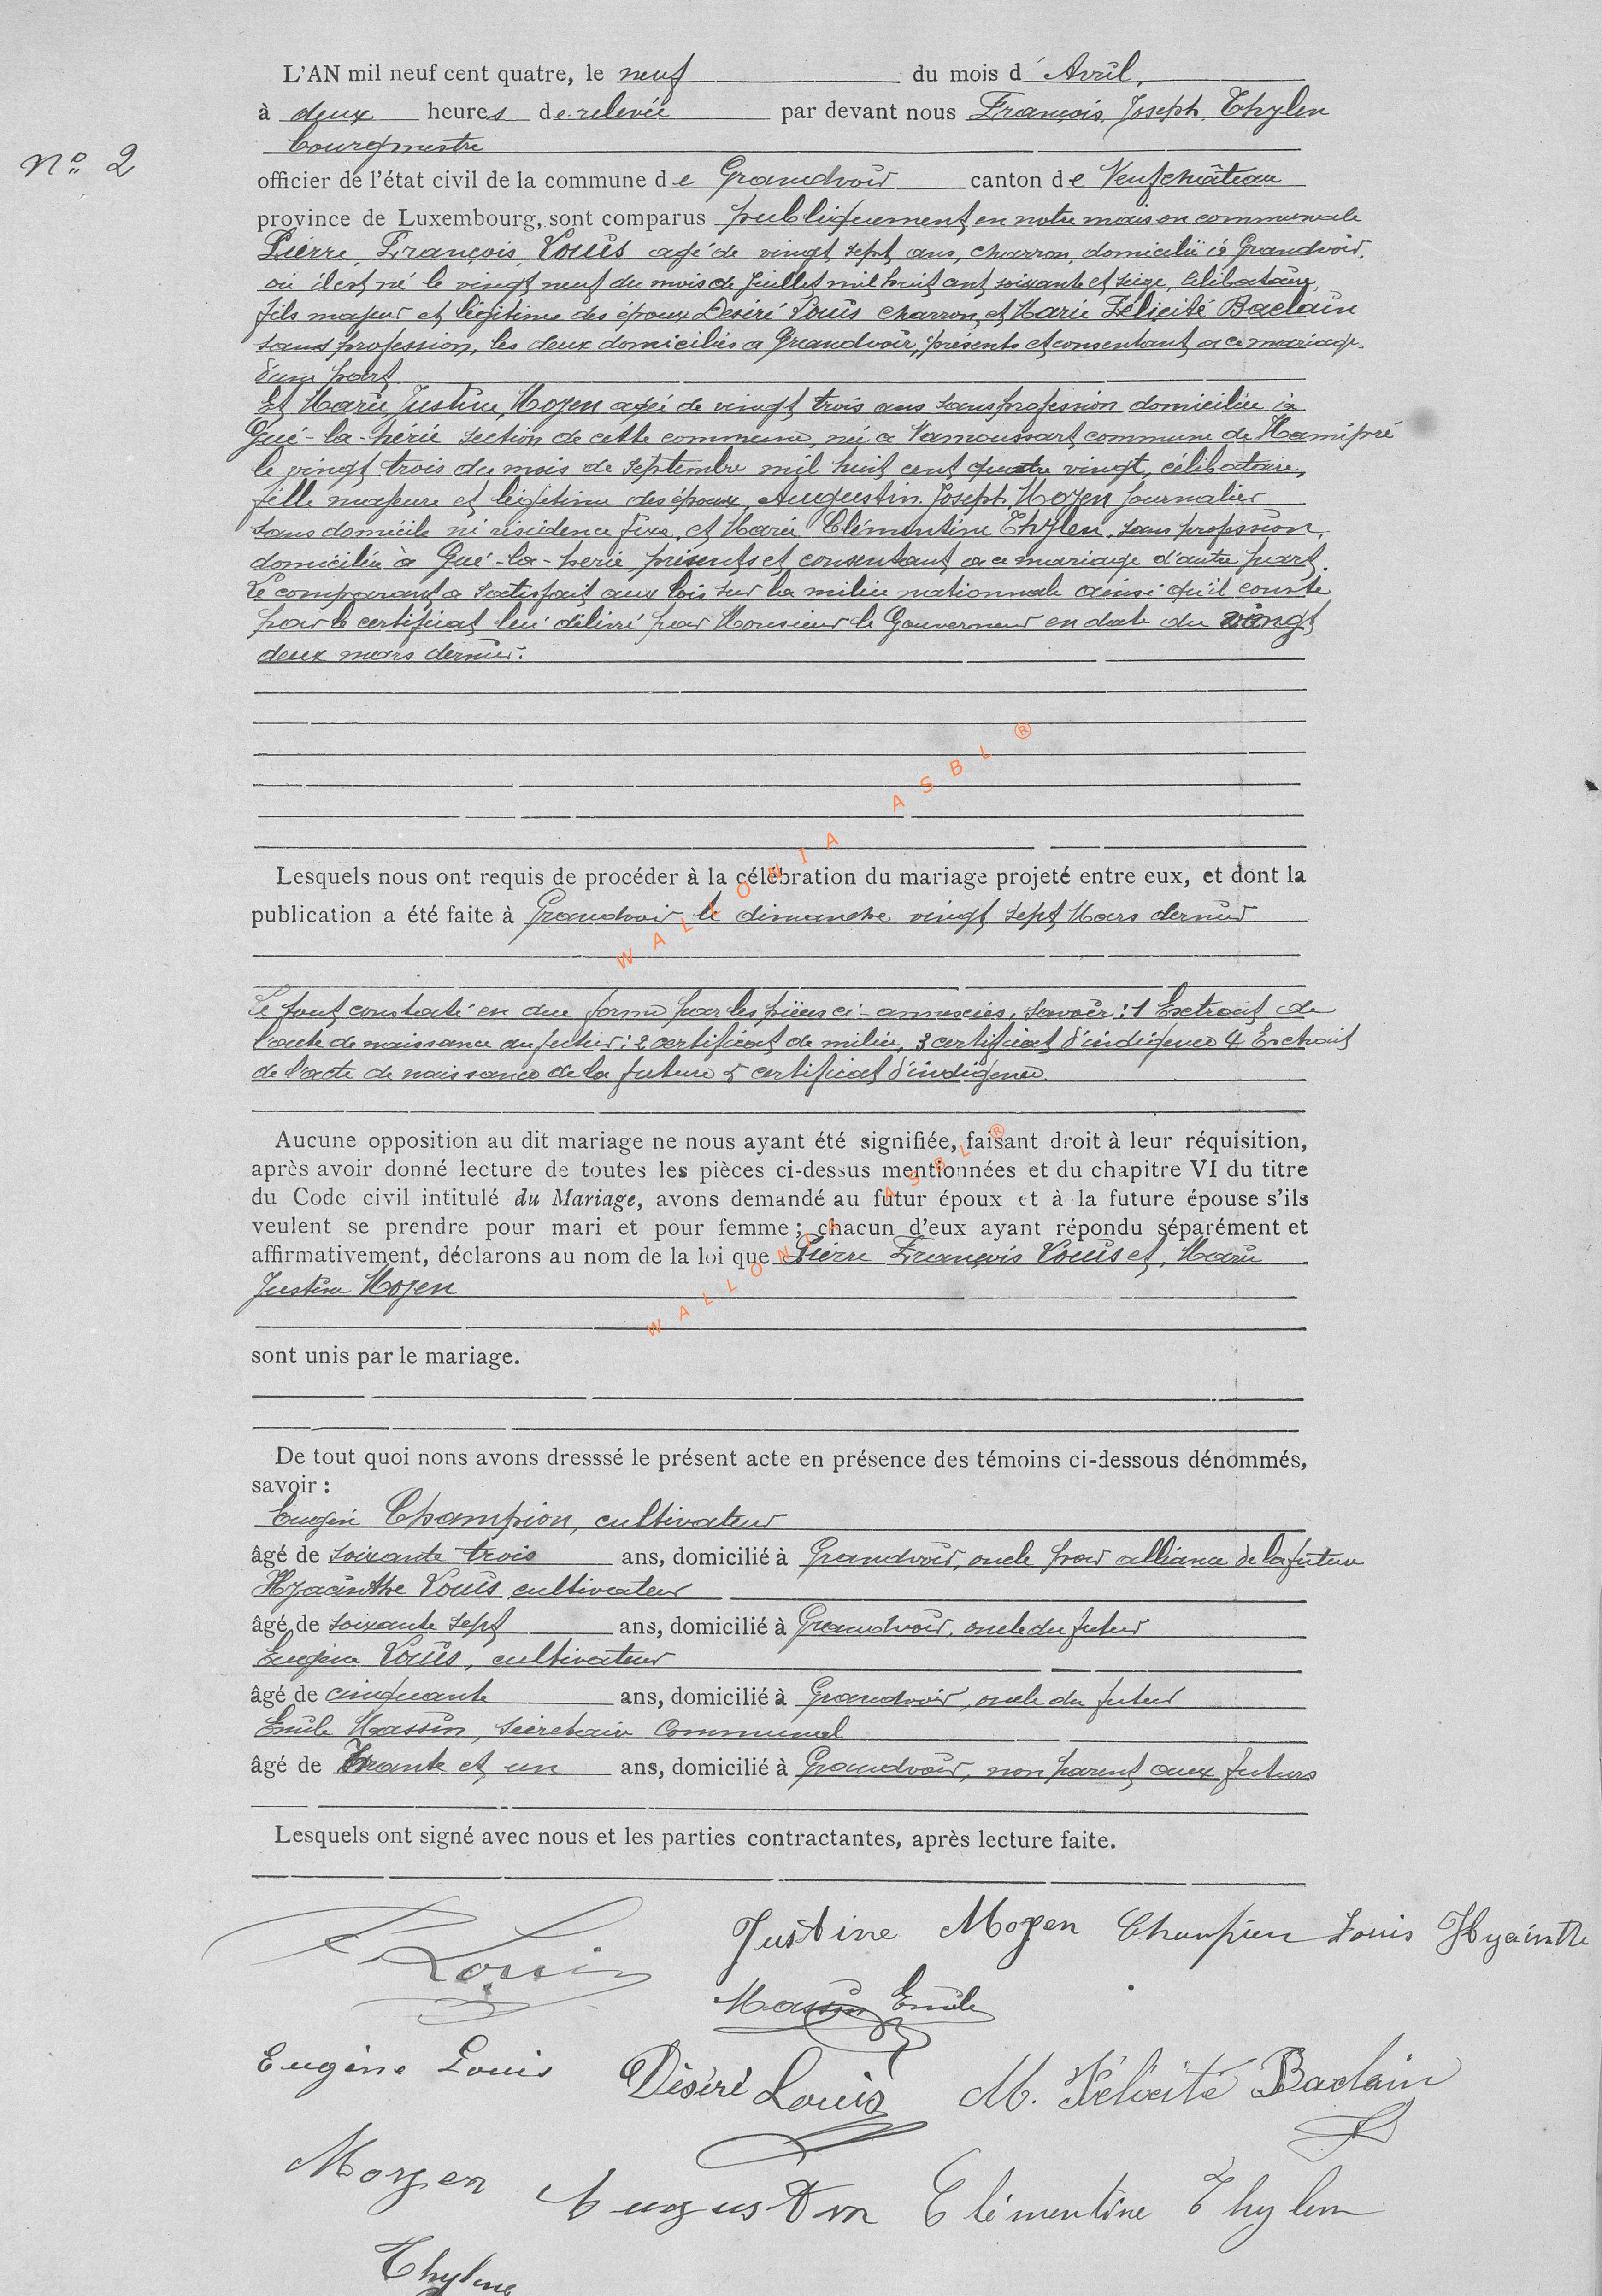 L'AN mil neuf cent quatre, le neuf du mois d' Avril,
à deux heures de relevée par devant nous François Joseph Thylen
bourgmestre
N° 2
officier de l'état civil de la commune de Grandvoir canton de Neufchâteau
province de Luxembourg, sont comparus publiquement en notre maison communale
Pierre François Louis agé de vingt sept ans, charron, domicilié à Grandvoir,
où il est né le vingt neuf du mois de Juillet mil huit cent soixante et seize, célibataire,
fils majeur et légitime des époux Désiré Louis charron, et Marie Félicité Baclain
sans profession, les deux domiciliés a Grandvoir, présents et consentant a ce mariage.
d'une part
Et Marie Justine Moyen agée de vingt trois ans sans profession domiciliée à
Gué-la-hérie section de cette commune, née a Namoussart commune de Hamipré
le vingt trois du mois de septembre mil huit cent quatre vingt, célibataire,
fille majeure et légitime des époux Augustin Joseph Moyen journalier
sans domicile ni résidence fixe, et Marie Clémentine Thylen, sans profession,
domiciliée à Gué-la-herie, présents et consentant a ce mariage d'autre part.
Le comparant a satisfait aux lois sur la milice nationnale ainsi qu'il conste
par le certificat lui délivré par Monsieur le Gouverneur en date du vingt
deux mars dernier.
WALLONIA ASBL ®
Lesquels nous ont requis de procéder à la célébration du mariage projeté entre eux, et dont la
publication a été faite à Grandvoir le dimanche vingt sept Mars dernier
Le tout constaté en due forme par les pièces ci-annexées, savoir : 1 Extrait de
l'acte de naissance du futur; 2 certificat de milice, 3 certificat d'indigence 4 Extrait
de l'acte de naissance de la future 5 certificat d'indigence.
Aucune opposition au dit mariage ne nous ayant été signifiée, faisant droit à leur réquisition,
après avoir donné lecture de toutes les pièces ci-dessus mentionnées et du chapitre VI du titre
du Code civil intitulé du Mariage, avons demandé au futur époux et à la future épouse s'ils
veulent se prendre pour mari et pour femme ; chacun d'eux ayant répondu séparément et
affirmativement, déclarons au nom de la loi que Pierre François Louis et, Marie
Justine Moyen
WALLONIA ASBL ®
sont unis par le mariage.
De tout quoi nons avons dresssé le présent acte en présence des témoins ci-dessous dénommés,
savoir :
Eugène Champion, cultivateur
âgé de soixante trois ans, domicilié à Grandvoir, oncle par alliance de la future
Hyacinthe Louis cultivateur
âgé de soixante sept ans, domicilié à Grandvoir, oncle du futur
Eugène Louis, cultivateur
âgé de cinquante ans, domicilié à Grandvoir, oncle du futur
Emile Massin, secrétaire Communal
âgé de Trente et un ans, domicilié à Grandvoir, non parent aux futurs
Lesquels ont signé avec nous et les parties contractantes, après lecture faite.
Louis Justine Moyen Champion Louis Hyacinthe
Massin Emile
Eugène Louis Désiré Louis M. Félicité Baclain
Moyen Augustin Clémentine Thylen
Thylen